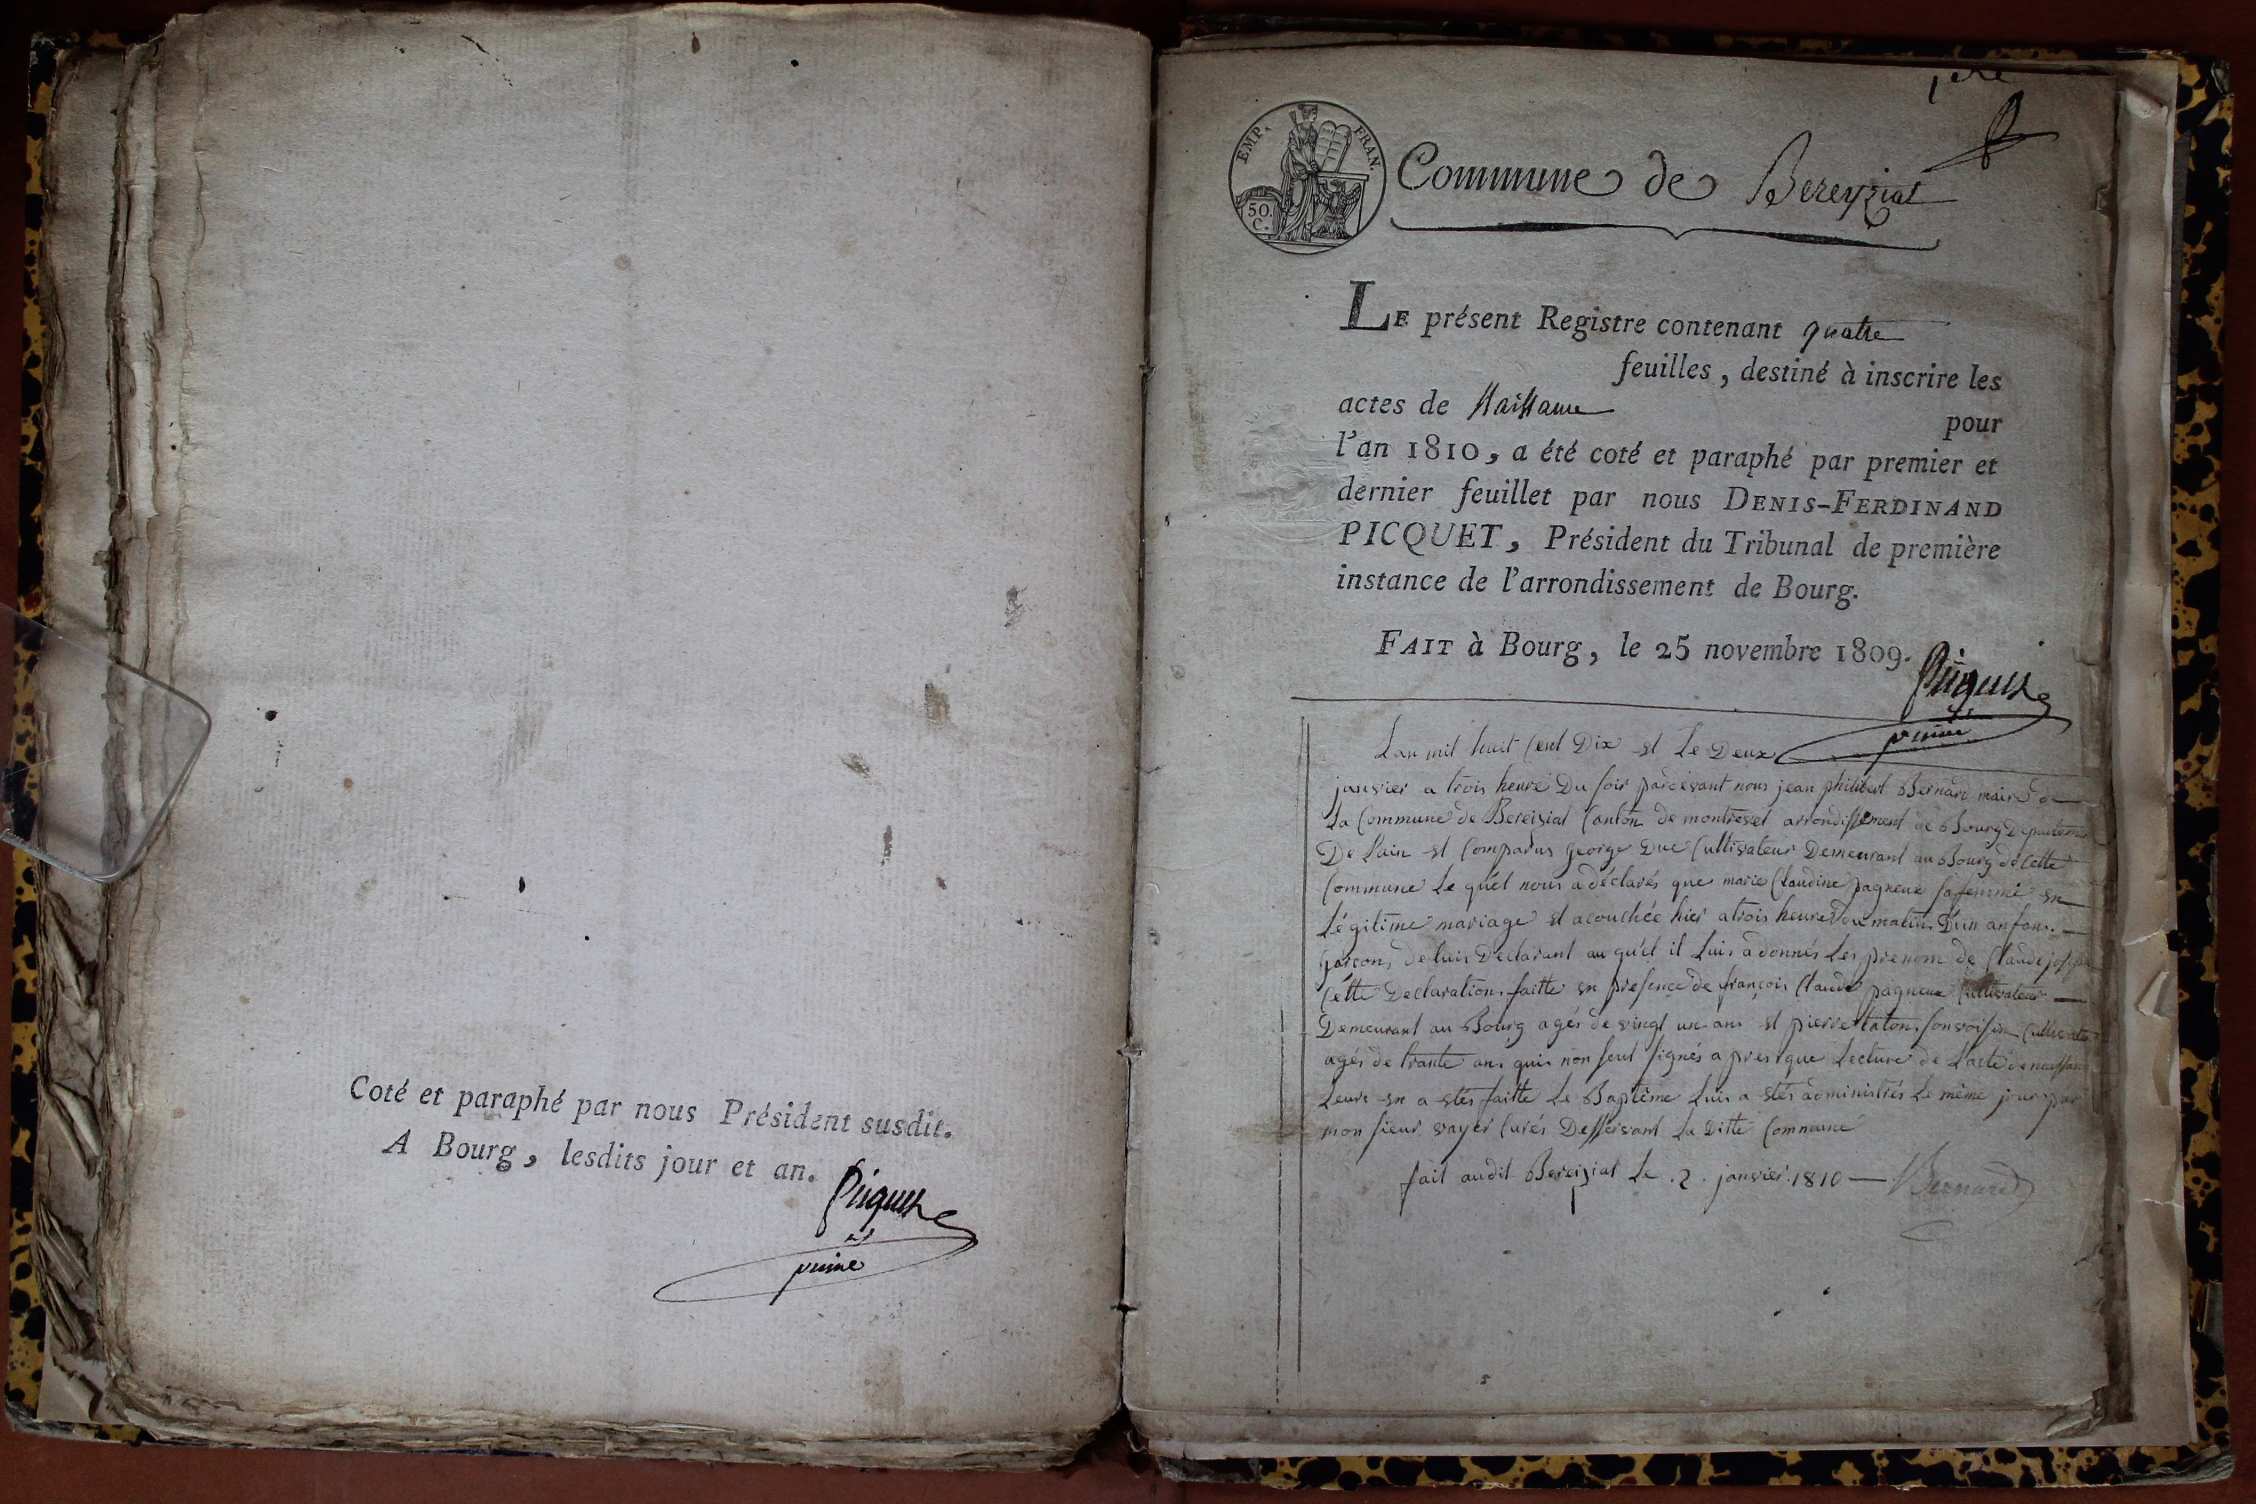 Coté et paraphé par nous Président susdit.
A Bourg, lesdits jour et an.
Picquet
prime
1ere
EMP. FRAN.
50.
C.
Commune de Bereyziat
LE présent Registre contenant quatre
feuilles, destiné à inscrire les
actes de Naissance
pour
l'an 1810, a été coté et paraphé par premier et
dernier feuillet par nous DENIS-FERDINAND
PICQUET, Président du Tribunal de première
instance de l'arrondissement de Bourg.
FAIT à Bourg, le 25 novembre 1809.
Picquet
prime
Lan mil huit Cent Dix et Le Deux
janvier a trois heure Du soir pardevant nous jean philibert Bernard maire de
La Commune de Bereiziat Canton de montrevel arrondissement de Bourg Departement
De Lain et Comparus George Duc Cultivateur Demeurant au Bourg de Cette
Commune Le quel nous a déclarés que marie Claudine pagneux sa femme en
Légitime mariage et acouchée hier a trois heures du matin D'un anfans
garçons de luis Declarant au quel il Luis a donnés Les prenom de Claude joseph
Cette Declarations faitte en presence de françois Claude pagneux Cultivateur
Demeurant au Bourg agés de vingt un ans et pierre Caton son voisin Cultivateur
agés de trante ans quis non seut signés apres que Lecture de L'acte de naissance
Leurs en a etés faitte Le Baptême Luis a etés administrés Le même jour par
monsieur vayer Curés Desservant La Ditte Commune
fait audit Bereiziat Le 2 janvier 1810 Bernard